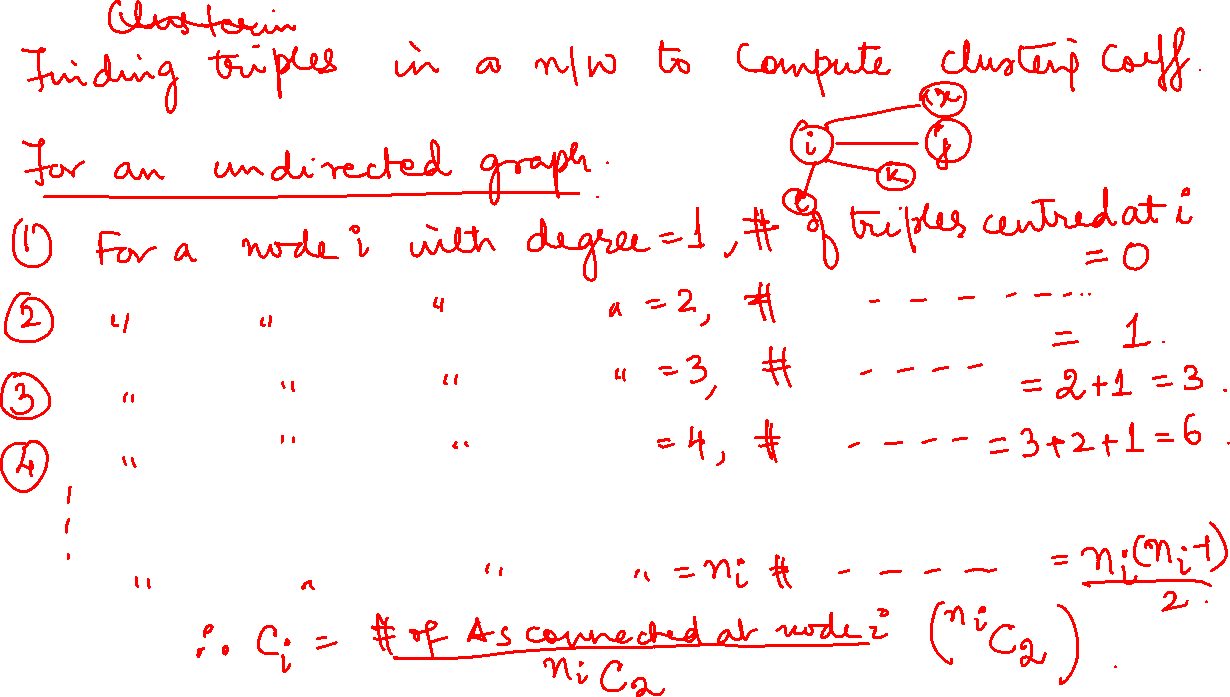 Finding triples in a n/w to Compute clustering Coeff.
For an undirected graph.
i x j k l
① For a node i with degree = 1, # of triples centred at i = 0
② " " " " = 2, # -------- = 1.
③ " " " " = 3, # ---- = 2+1 = 3.
④ " " " = 4, # ---- = 3+2+1 = 6.
" " " " = nᵢ # ----- = nᵢ(nᵢ-1)/2.
∴ Cᵢ = # of Δs connected at node i / ⁿⁱC₂ (ⁿⁱC₂).